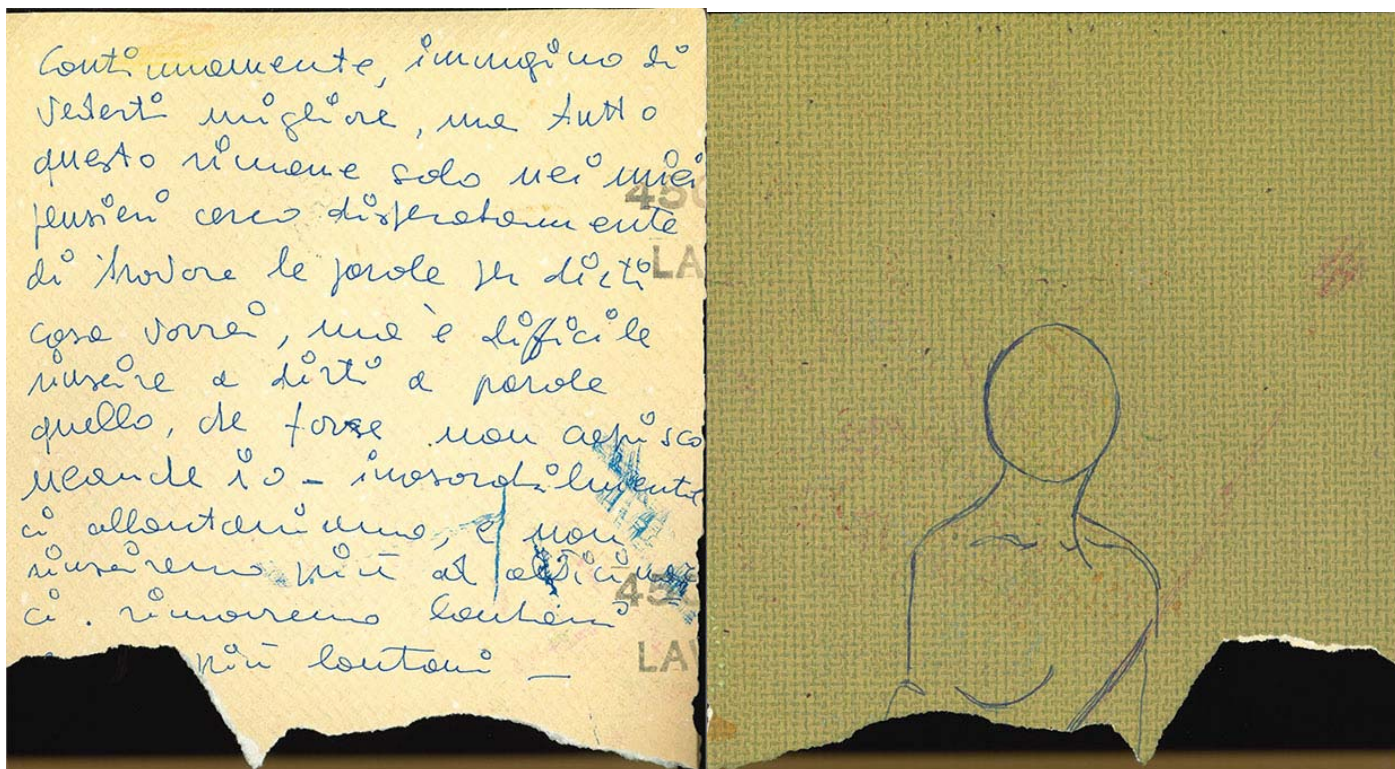 Continuamente, immagino di
vederti migliore, ma tutto
questo rimane solo nei miei
pensieri cerco disperatamente
di trovare le parole per dirti
cosa vorrei, ma è difficile
riuscire a dirti a parole
quello, che forse non capisco
neanche io - inesorabilmente
ci allontaniamo, e non
riusciremo più ad avvicinar
ci. rimarremo lontani
più lontani _
450
LA
LAV